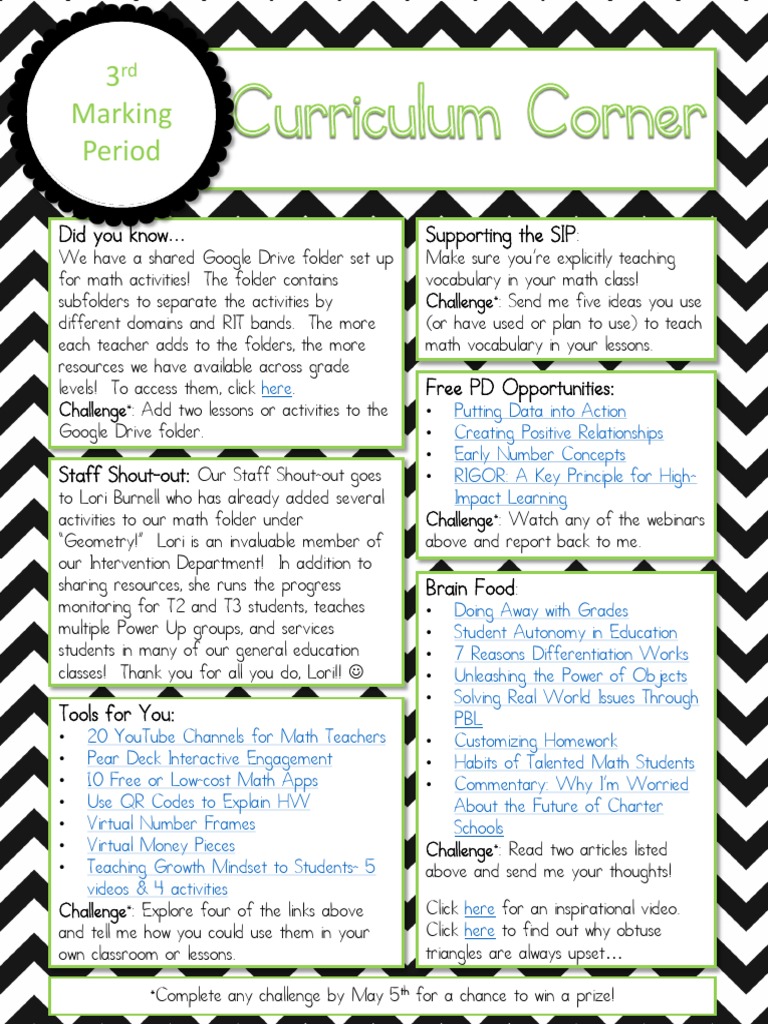 3rd
Marking
Period
Curriculum Corner
Did you know...
We have a shared Google Drive folder set up
for math activities! The folder contains
subfolders to separate the activities by
different domains and RIT bands. The more
each teacher adds to the folders, the more
resources we have available across grade
levels! To access them, click here.
Challenge*: Add two lessons or activities to the
Google Drive folder.
Staff Shout-out: Our Staff Shout-out goes
to Lori Burnell who has already added several
activities to our math folder under
"Geometry!" Lori is an invaluable member of
our Intervention Department! In addition to
sharing resources, she runs the progress
monitoring for T2 and T3 students, teaches
multiple Power Up groups, and services
students in many of our general education
classes! Thank you for all you do, Lori!! ☺
Tools for You:
• 20 YouTube Channels for Math Teachers
• Pear Deck Interactive Engagement
• 10 Free or Low-cost Math Apps
• Use QR Codes to Explain HW
• Virtual Number Frames
• Virtual Money Pieces
• Teaching Growth Mindset to Students- 5
videos & 4 activities
Challenge*: Explore four of the links above
and tell me how you could use them in your
own classroom or lessons.
Supporting the SIP:
Make sure you're explicitly teaching
vocabulary in your math class!
Challenge*: Send me five ideas you use
(or have used or plan to use) to teach
math vocabulary in your lessons.
Free PD Opportunities:
• Putting Data into Action
• Creating Positive Relationships
• Early Number Concepts
• RIGOR: A Key Principle for High-
Impact Learning
Challenge*: Watch any of the webinars
above and report back to me.
Brain Food:
• Doing Away with Grades
• Student Autonomy in Education
• 7 Reasons Differentiation Works
• Unleashing the Power of Objects
• Solving Real World Issues Through
PBL
• Customizing Homework
• Habits of Talented Math Students
• Commentary: Why I'm Worried
About the Future of Charter
Schools
Challenge*: Read two articles listed
above and send me your thoughts!
Click here for an inspirational video.
Click here to find out why obtuse
triangles are always upset...
*Complete any challenge by May 5th for a chance to win a prize!